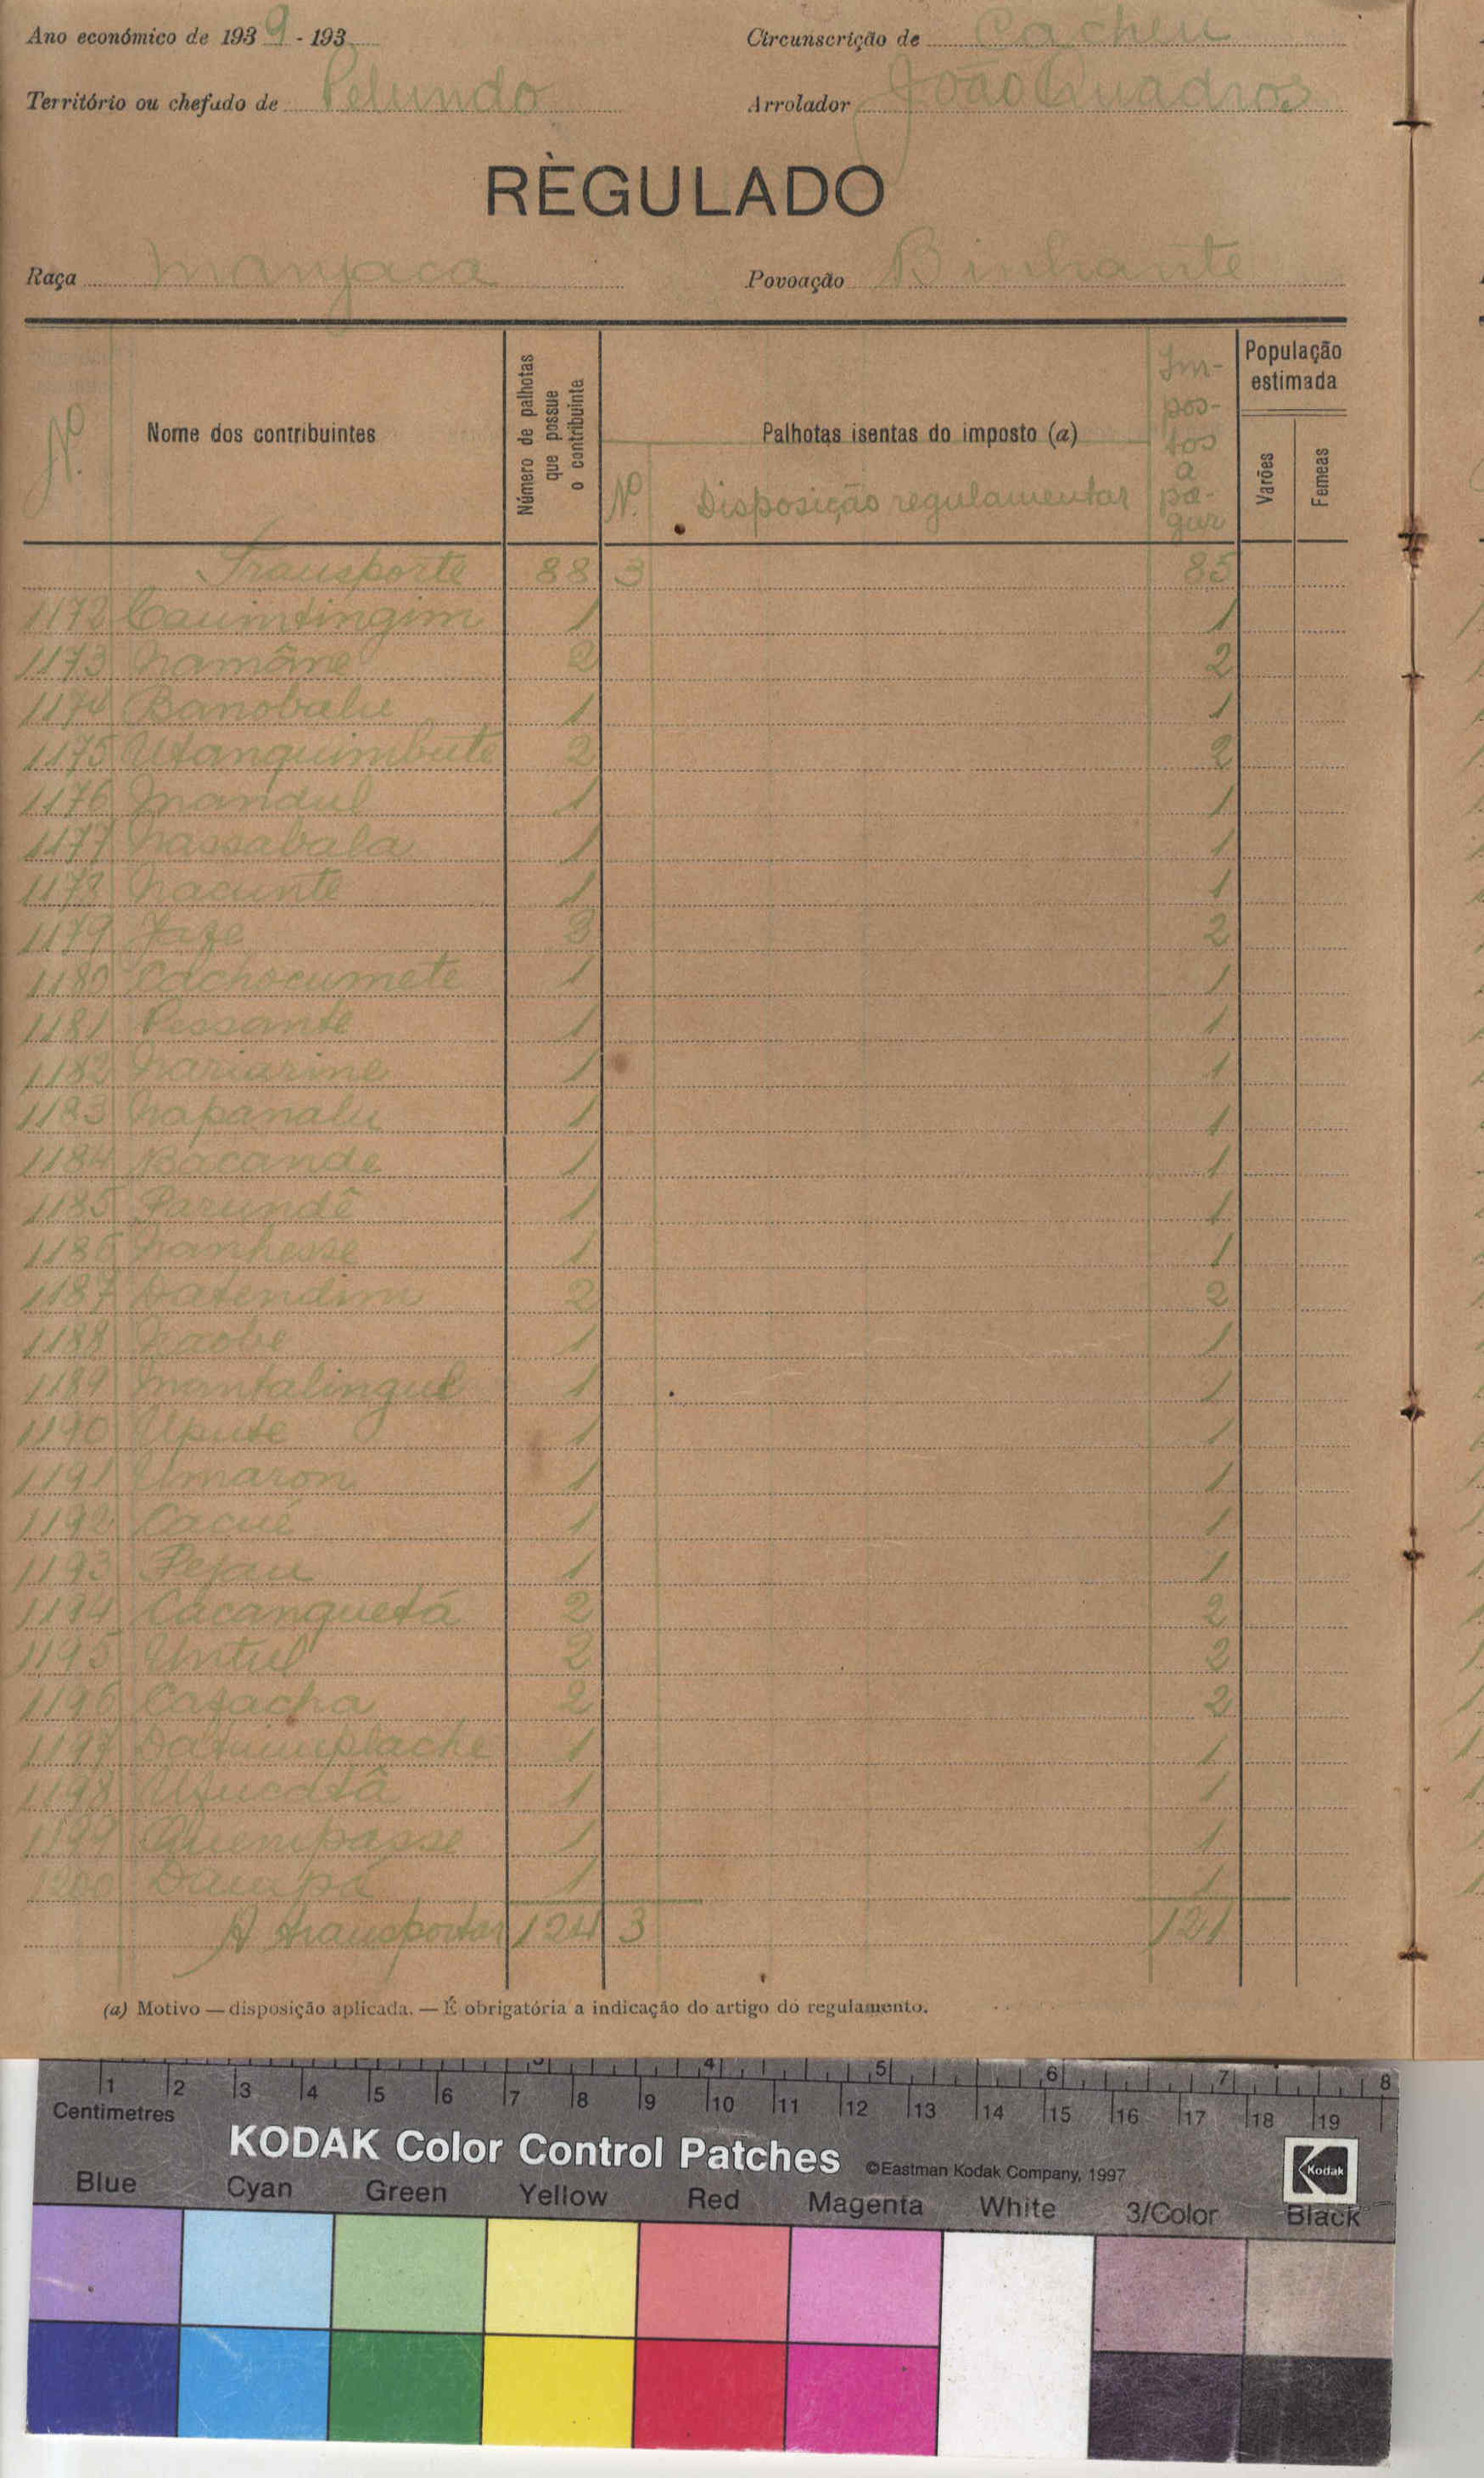 Ano económico de 1939 - 193
Circunscrição de Cacheu
Território ou chefado de Pelundo
Arrolador João Quadros
RÈGULADO
Raça Manjaca
Povoação Binhante
Nº
Nome dos contribuintes
Número de palhotas que possue o contribuinte
Palhotas isentas do imposto (a)
Nº. Disposição regulamentar
Impostos a pagar
População estimada
Varões
Femeas
Transporte 88 3 85
1172 Cauintingim 1 1
1173 Namône 2 2
1174 Banobalu 1 1
1175 Utanquimbute 2 2
1176 Mandul 1 1
1177 Nassabala 1 1
1178 Nacunte 1 1
1179 3 2
1180 Cachocumete 1 1
1181 Pessante 1 1
1182 Nariarine 1 1
1183 Napanalu 1 1
1184 Bacande 1 1
1185 Parundê 1 1
1186 Nanhesse 1 1
1187 Datendim 2 2
1188 Naobe 1 1
1189 Mantalingul 1 1
1190 Upute 1 1
1191 Umaron 1 1
1192 Cacué 1 1
1193 Pejau 1 1
1194 Cacanguetá 2 2
1195 Untul 2 2
1196 Cajacha 2 2
1197 1 1
1198 1 1
1199 Quempasse 1 1
1200 Daumpá 1 1
A transportar 124 3 121
(a) Motivo — disposição aplicada. — É obrigatória a indicação do artigo do regulamento.
4 5 6 7 8
1 2 3 4 5 6 7 8 9 10 11 12 13 14 15 16 17 18 19
Centimetres
KODAK Color Control Patches ©Eastman Kodak Company, 1997 Kodak
Blue Cyan Green Yellow Red Magenta White 3/Color Black